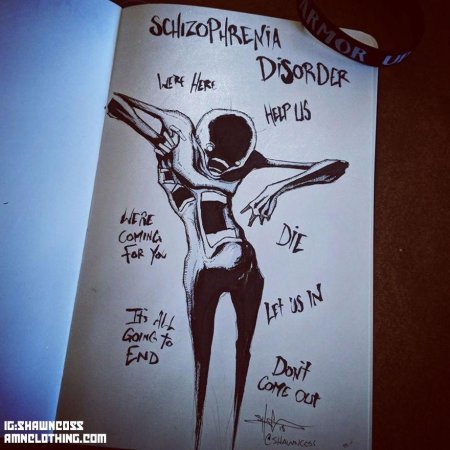 SCHIZOPHRENIA
DISORDER
WE'RE HERE
HELP US
WE'RE
COMING
FOR YOU
DIE
LET US IN
IT'S ALL
GOING TO
END
DON'T
COME OUT
@SHAWNCOSS
ARMOR UP
IG:SHAWNCOSS
AMNCLOTHING.COM